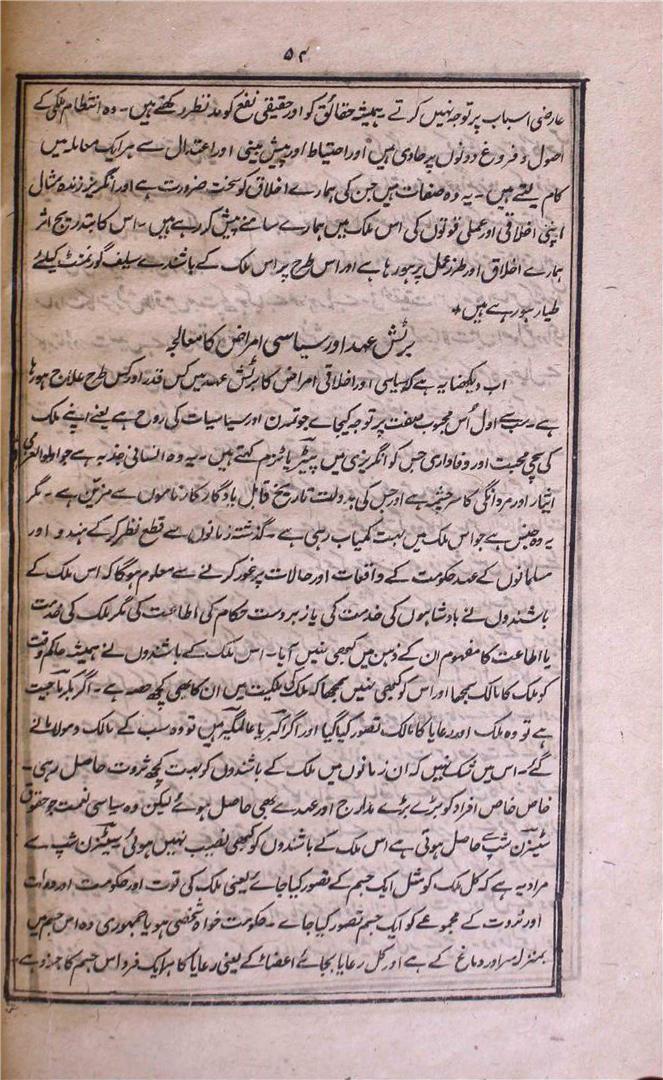 ۵۴
عارضی اسباب پر توجہ نہیں کرتے ۔ ہمیشہ حقائق کو اور حقیقی نفع کو مد نظر رکھتے ہیں ۔ وہ انتظام ملکی کے
اصول و فروغ دونوں پر حاوی ہیں اور احتیاط اور پیش بینی اور اعتدال سے ہر ایک معاملہ میں
کام لیتے ہیں ۔ یہ وہ صفات ہیں جن کی ہمارے اخلاق کو سخت ضرورت ہے اور انگریز زندہ مثال
اپنی اخلاقی اور عملی قوتوں کی اس ملک میں ہمارے سامنے پیش کر رہے ہیں ۔ اس کا بتدریج اثر
ہمارے اخلاق اور طرز عمل پر ہو رہا ہے اور اس طرح پر اس ملک کے باشندے سیلف گورنمنٹ کیلئے
طیار ہو رہے ہیں ٭
برٹش عہد اور سیاسی امراض کا معالجہ
اب دیکھنا یہ ہے کہ سیاسی اور اخلاقی امراض کا برٹش عہد میں کس قدر اور کس طرح علاج ہو رہا
ہے ۔ سب سے اول اُس محبوب صفت پر توجہ کیجائے جو تمدن اور سیاسیات کی روح ہے یعنے اپنے ملک
کی سچی محبت اور وفاداری جس کو انگریزی میں پیٹریاٹزم کہتے ہیں ۔ یہ وہ انسانی جذبہ ہے جو اولوالعزمی
ایثار اور مردانگی کا سرچشمہ ہے اور جس کی بدولت تاریخ قابل یادگار کارناموں سے مزین ہے ۔ مگر
یہ وہ جنس ہے جو اس ملک میں بہت کمیاب رہی ہے ۔ گذشتہ زمانوں سے قطع نظر کر کے ہندو اور
مسلمانوں کے عہد حکومت کے واقعات اور حالات پر غور کرنے سے معلوم ہو گا کہ اس ملک کے
باشندوں نے بادشاہوں کی خدمت کی یا زبردست حکام کی اطاعت کی مگر ملک کی خدمت
یا اطاعت کا مفہوم ان کے ذہن میں کبھی نہیں آیا ۔ اس ملک کے باشندوں نے ہمیشہ حاکم وقت
کو ملک کا مالک سمجھا اور اس کو کبھی نہیں سمجھا کہ ملک کی ملکیت میں ان کا بھی کچھ حصہ ہے ۔ اگر بکرماجیت
ہے تو وہ ملک اور رعایا کا مالک تصور کیا گیا اور اگر اکبر یا عالمگیر ہیں تو وہ سب کے مالک و مولا مانے
گئے ۔ اس میں شک نہیں کہ ان زمانوں میں ملک کے باشندوں کو بہت کچھ ثروت حاصل رہی ۔
خاص خاص افراد کو بڑے بڑے مدارج اور عہدے بھی حاصل ہوئے لیکن وہ سیاسی نعمت جو حقوق
سٹیزن شپ سے حاصل ہوتی ہے اس ملک کے باشندوں کو کبھی نصیب نہیں ہوئی سیٹیزن شپ سے
مراد یہ ہے کہ کل ملک کو مثل ایک جسم کے تصور کیا جائے یعنی ملک کی قوت اور حکومت اور دولت
اور ثروت کے مجموعے کو ایک جسم تصور کیا جائے ۔ حکومت خواہ شخصی ہو یا جمہوری وہ اس جسم میں
بمنزلہ سر اور دماغ کے ہے اور کل رعایا بجائے اعضائے کے یعنی رعایا کا ہر ایک فرد اس جسم کا جزو ہے ۔